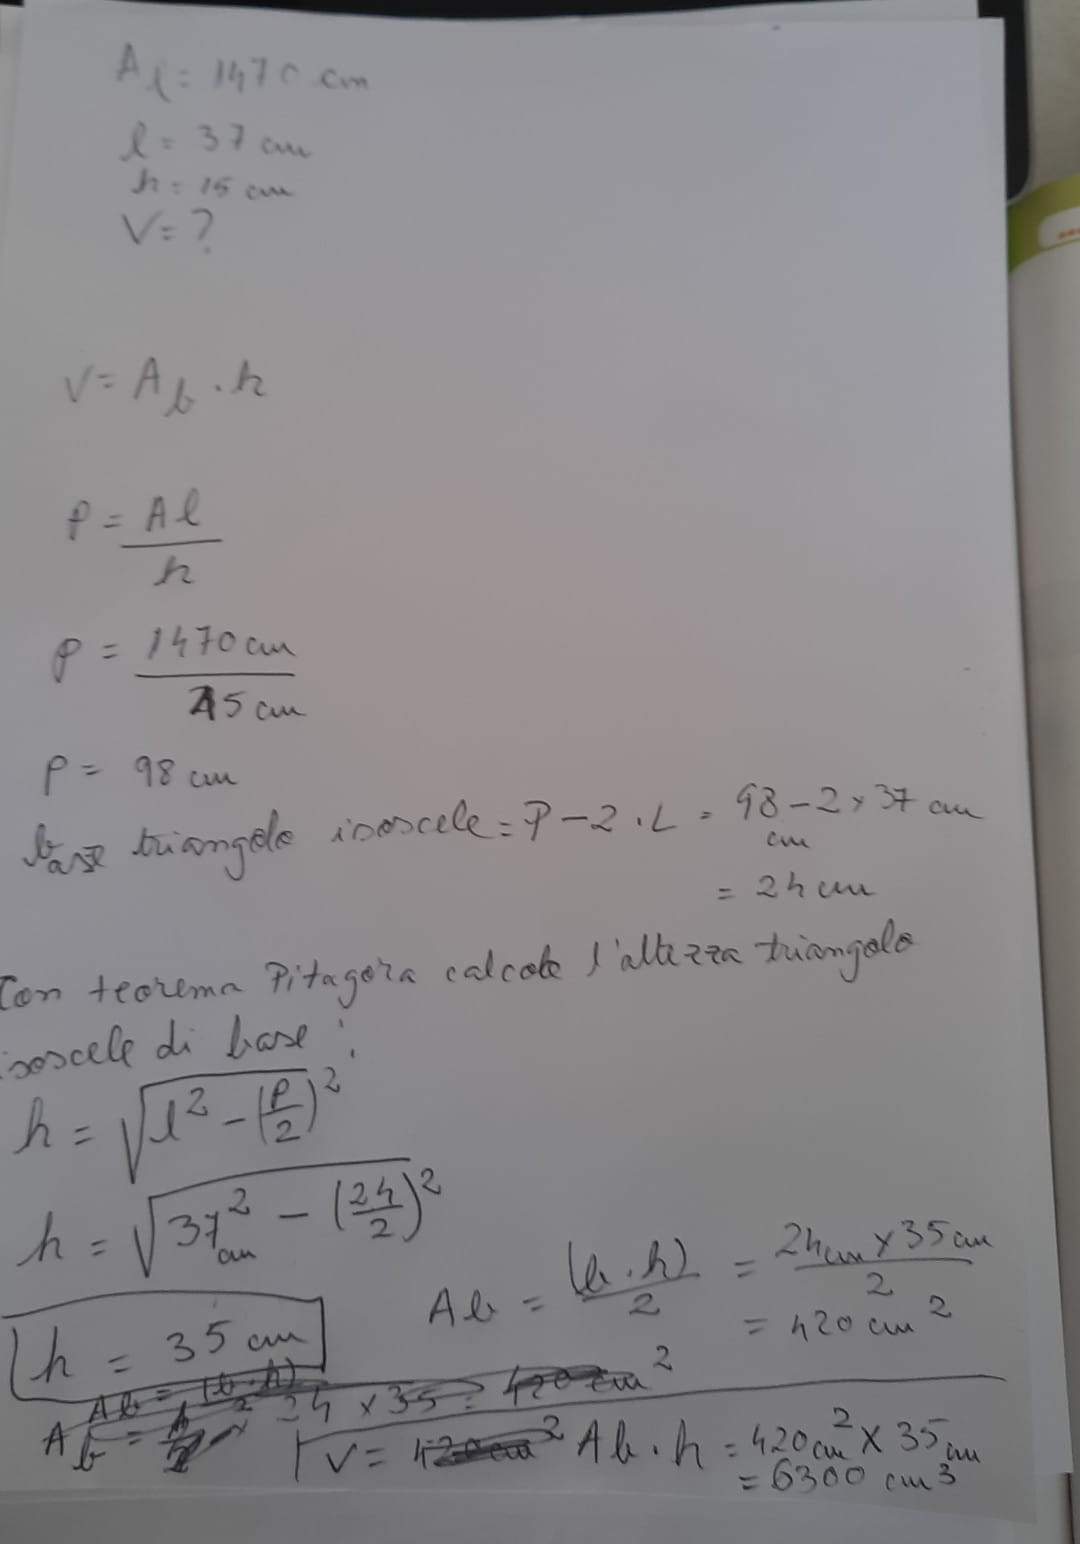 Al = 1470 cm
l = 37 cm
h = 15 cm
V = ?
V = Ab . h
P = Al / h
P = 1470 cm / 15 cm
P = 98 cm
base triangolo isoscele = P - 2 . L = 98 cm - 2 x 37 cm
= 24 cm
Con teorema Pitagora calcolo l'altezza triangolo
isoscele di base :
h = √l² - (P/2)²
h = √37² cm - (24/2)²
Ab = (b . h) / 2 = 24 cm x 35 cm / 2
= 420 cm²
h = 35 cm
Ab = (b . h)
Ab = x 24 x 35 = 420 cm²
V = 420 cm² Ab . h = 420 cm² x 35 cm
= 6300 cm³